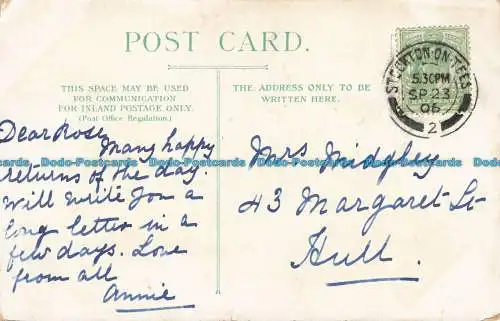 POST CARD.
THIS SPACE MAY BE USED
FOR COMMUNICATION
FOR INLAND POSTAGE ONLY.
(Post Office Regulation.)
THE ADDRESS ONLY TO BE
WRITTEN HERE.
STOCKTON-ON-TEES
5.30PM
SP 23
06
2
Dear Rose
Many happy
returns of the day.
Will write you a
long letter in a
few days. Love
from all
Annie
Mrs Midgley
43 Margaret St
Hull.
Dodo-Postcards Dodo-Postcards Dodo-Postcards Dodo-Postcards Dodo-Postcards